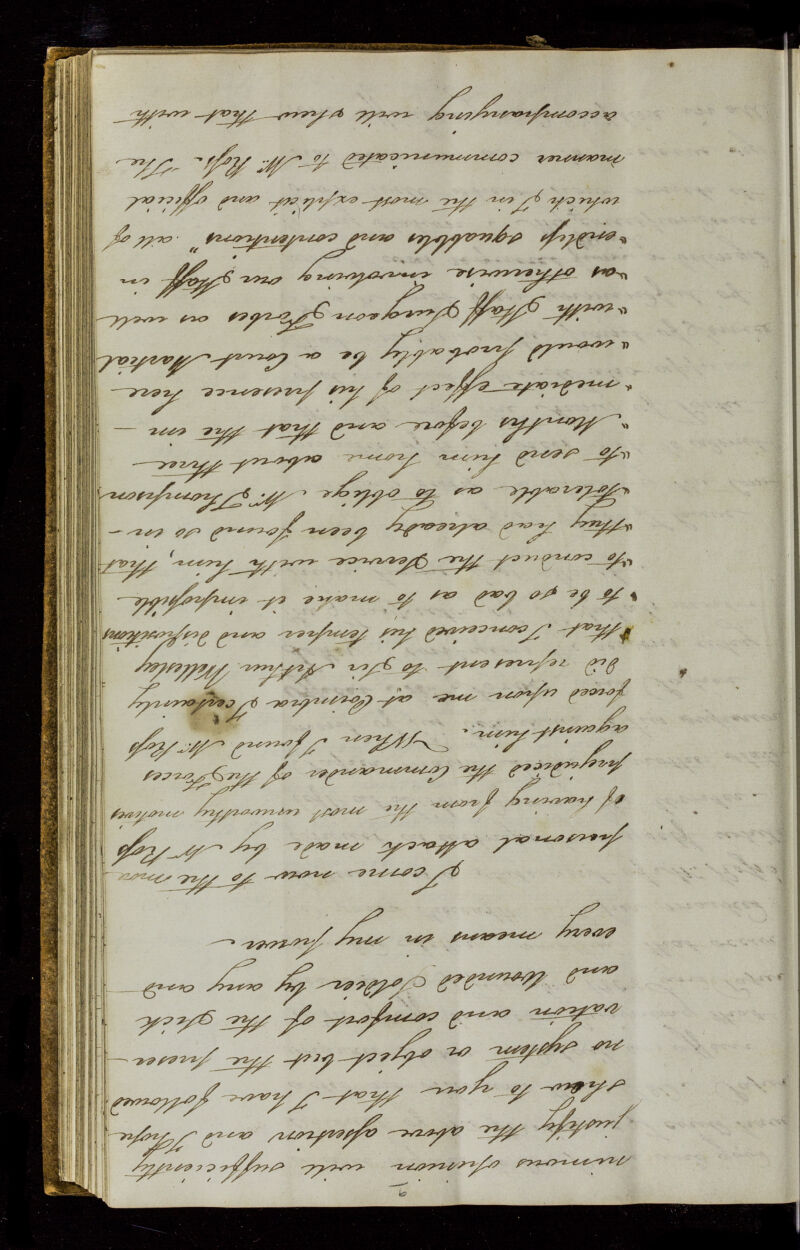 2
nimous opinion will sufficiently
justify the above assertion and I hope
shew to you that I have followed
no system or object but the preser-
vation and comfort of the Sick
and Wounded Soldier by any and
every means in my power.
I come now to the
personal attack made by Mr. Ross
of having from the most unworthy motives
prejudiced the Commander of the Forces
against him. When I found Mr. Ross
forced upon me at Coimbra I certainly
did represent to Sir Arthur Wellesley
that I conceived his temper and dispositions
"to be so bad as to make it impossible
"to conduct the Service with him, that
"they had already been found so in-
"tolerable as to oblige Mr. Thompson
"to send him home about three
"Months before and that the im-
"mediate effect of his presence here
"would probably be a Court Martial
"with Staff Surgeon Forbes as well
"as otherwise involving our Staff in
"endless squabbles and contentions" all of
which I in the most explicit and official
manner communicated to Mr. Ross. The
accompanying will shew that with